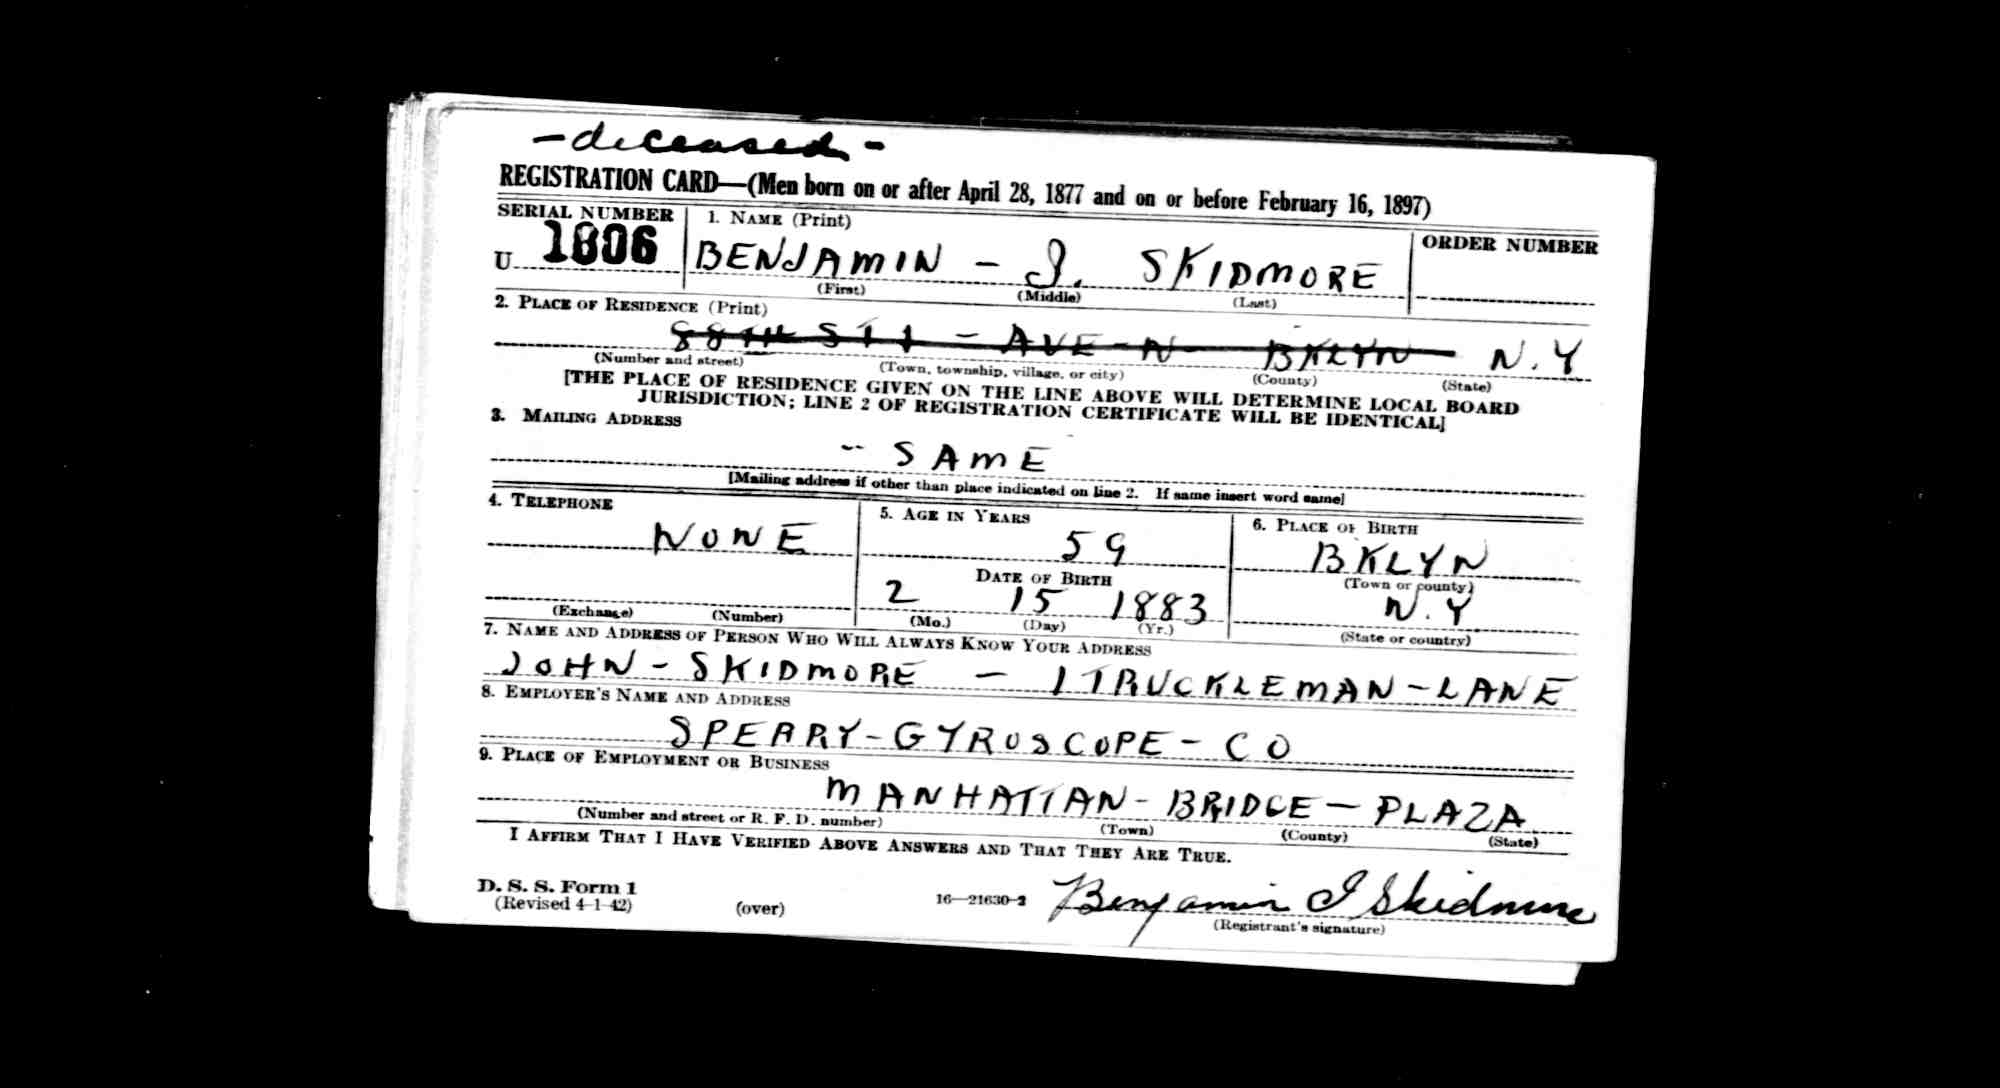 -deceased-
REGISTRATION CARD—(Men born on or after April 28, 1877 and on or before February 16, 1897)
SERIAL NUMBER 1. NAME (Print) ORDER NUMBER
U 1806 BENJAMIN - J. SKIDMORE
(First) (Middle) (Last)
2. PLACE OF RESIDENCE (Print)
88TH ST 1 - AVE-N BKLYN N.Y
(Number and street) (Town, township, village, or city) (County) (State)
[THE PLACE OF RESIDENCE GIVEN ON THE LINE ABOVE WILL DETERMINE LOCAL BOARD
JURISDICTION; LINE 2 OF REGISTRATION CERTIFICATE WILL BE IDENTICAL]
3. MAILING ADDRESS
-- SAME
[Mailing address if other than place indicated on line 2. If same insert word same]
4. TELEPHONE 5. AGE IN YEARS 6. PLACE OF BIRTH
NONE 59 BKLYN
DATE OF BIRTH (Town or county)
2 15 1883 N.Y
(Exchange) (Number) (Mo.) (Day) (Yr.) (State or country)
7. NAME AND ADDRESS OF PERSON WHO WILL ALWAYS KNOW YOUR ADDRESS
JOHN - SKIDMORE - 1 TRUCKLEMAN - LANE
8. EMPLOYER'S NAME AND ADDRESS
SPERRY-GYROSCOPE-CO
9. PLACE OF EMPLOYMENT OR BUSINESS
MANHATTAN-BRIDGE-PLAZA
(Number and street or R. F. D. number) (Town) (County) (State)
I AFFIRM THAT I HAVE VERIFIED ABOVE ANSWERS AND THAT THEY ARE TRUE.
D. S. S. Form 1
(Revised 4-1-42) (over) 16—21630-2 Benjamin J Skidmore
(Registrant's signature)